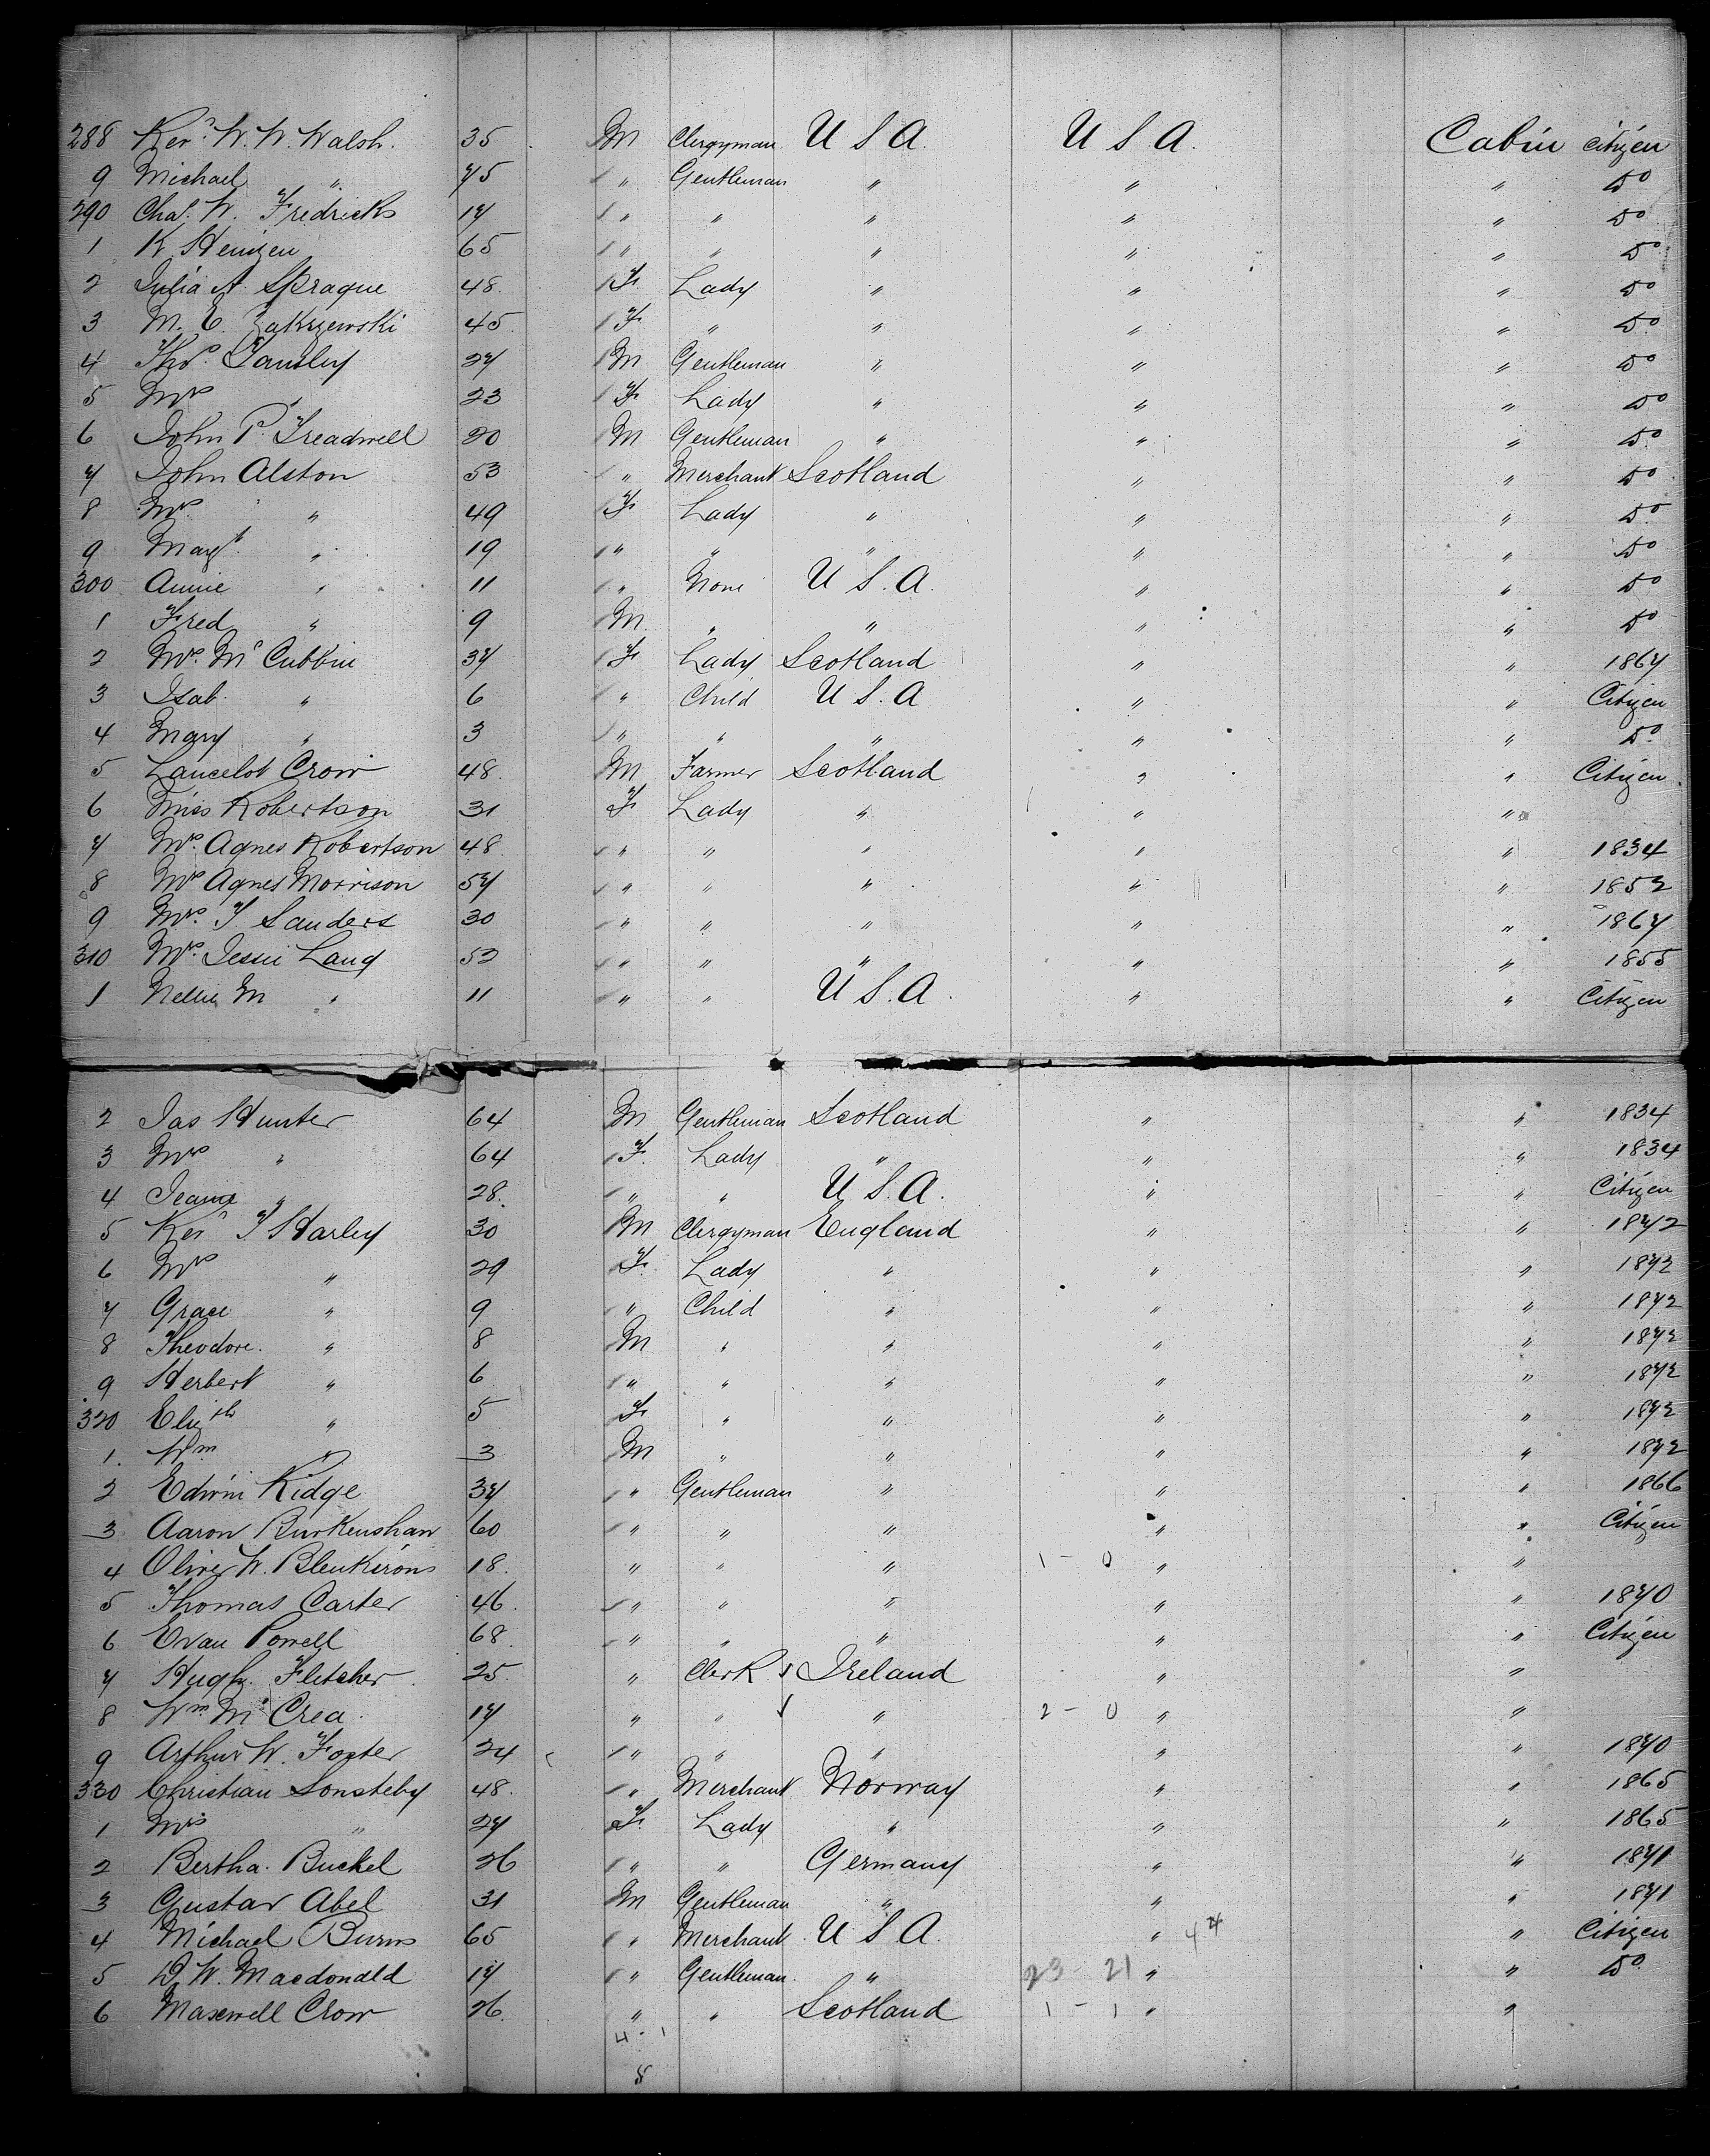 288 Revd. W. W. Walsh. 35 M Clergyman U S A. U S A. Cabin Citizen
9 Michael " 75 " Gentleman " " " Do
290 Chas. W. Fredricks 17 " " " " " Do
1 K Heinzen 65 " " " " " Do
2 Julia A Sprague 48 F Lady " " " Do
3 M. E. Zakrzewski 45 F " " " " Do
4 Thos. Tansley 27 M Gentleman " " " Do
5 Mrs " 23 F Lady " " " Do
6 John P. Treadwell 20 M Gentleman " " " Do
7 John Alston 53 " Merchant Scotland " " Do
8 Mrs " 49 F Lady " " " Do
9 Magt. " 19 " " " " " Do
300 Annie " 11 " None U S. A. " " Do
1 Fred " 9 M " " " " Do
2 Mrs. Mc Cubbin 37 F Lady Scotland " " 1867
3 Isab. " 6 " Child U S. A " " Citizen
4 Mary " 3 " " " " " Do
5 Lancelot Crow 48. M Farmer Scotland " " Citizen
6 Miss Robertson 31 F Lady " " "
7 Mrs. Agnes Robertson 48 " " " " " 1834
8 Mrs Agnes Morrison 57 " " " " " 1852
9 Mrs. T Sanders 30 " " " " " 1867
310 Mrs. Jessie Lang 52 " " " " " 1855
1 Nellie M " 11 " " U S. A. " " Citizen
2 Jas Hunter 64 M Gentleman Scotland " " 1834
3 Mrs " 64 F. Lady " " " 1834
4 Jeanie " 28. " " U S. A. " " Citizen
5 Revd T Harley 30 M Clergyman England " " 1872
6 Mrs " 29 F. Lady " " " 1872
7 Grace " 9 " Child " " " 1872
8 Theodore. " 8 M " " " " 1872
9 Herbert " 6 " " " " " 1872
320 Elizth " 5 F " " " " 1872
1. Wm " 3 M " " " " 1872
2 Edwin Ridge 37 " Gentleman " " " 1866
3 Aaron Burkenshaw 60 " " " " " Citizen
4 Oliver W. Blenkirons 18. " " " 1 - 0 " "
5 Thomas Carter 46. " " " " " 1870
6 Evan Powell 68. " " " " " Citizen
7 Hugh. Fletcher 25 " Clerk Ireland " "
8 Wm. Mc Crea. 17 " " " 2 - 0 " "
9 Arthur W. Foster 24 " " " " " 1870
330 Christian Sonsteby 48. " Merchant Norway " " 1865
1 Mrs " 27 F. Lady " " " 1865
2 Bertha. Buckel 26 " " Germany " " 1871
3 Gustav Abel 31 M Gentleman " " " 1871
4 Michael Burns 65 " Merchant U S A. " " Citizen
5 D. W. Macdonald 17 " Gentleman. " 23 - 21 " " Do
6 Maxwell Crow 26. " " Scotland 1 - 1 " "
4 - 1
8